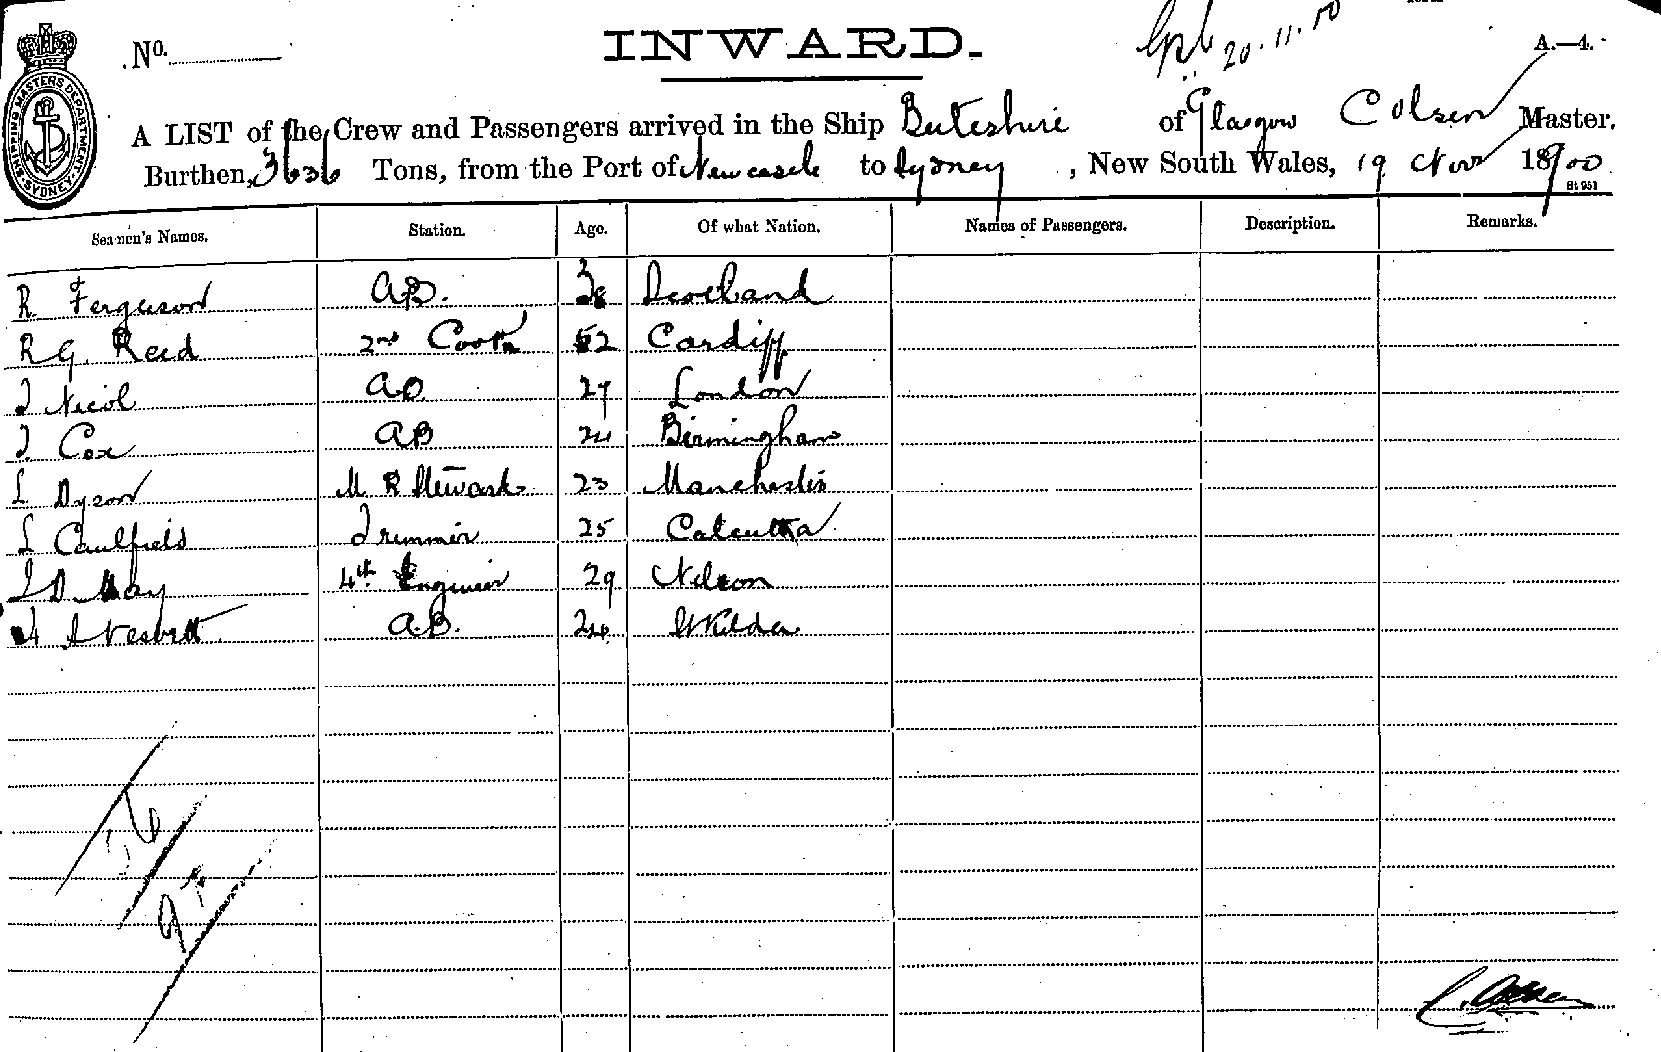 No.
INWARD.
20.11.00
A.—4.
SHIPPING MASTERS DEPARTMENT SYDNEY
A LIST of the Crew and Passengers arrived in the Ship Buteshire of Glasgow Colsen Master.
Burthen, 3636 Tons, from the Port of Newcastle to Sydney, New South Wales, 19 Nov 1900
Seamen's Names. Station. Age. Of what Nation. Names of Passengers. Description. Remarks.
R Ferguson AB. 38 Scotland
R G. Reed 2nd Cook 52 Cardiff
J Nicol AB 27 London
J Cox AB 24 Birmingham
L Dyson M R Steward 23 Manchester
L Caulfield Trimmer 25 Calcutta
J D May 4th Engineer 29 Nelson
Nesbitt A.B. 24 St Kilda